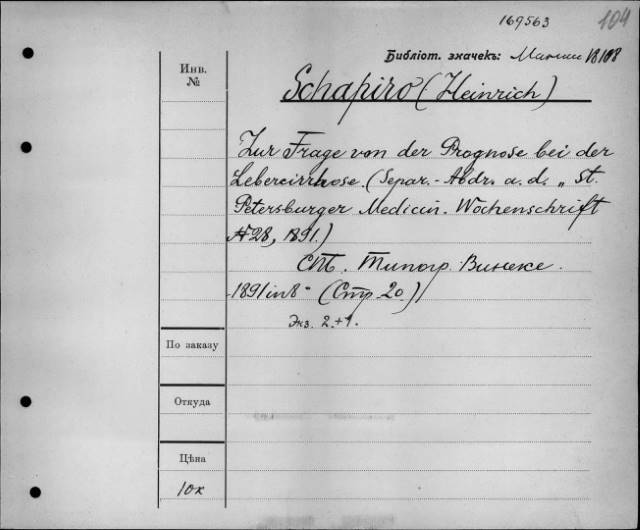 169563 104
Библіот. значекъ: В 108
Инв.
№
Schapiro (Heinrich)
Zur Frage von der Prognose bei der
Lebercirrhose. (Separ.-Abdr. a. d. „St.
Petersburger Medicin. Wochenschrift
№ 28, 1891.)
СПб. Типогр. Винеке.
1891 in 8° (Стр. 20.)
Экз. 2.+1.
По заказу
Откуда
Цѣна
10 к